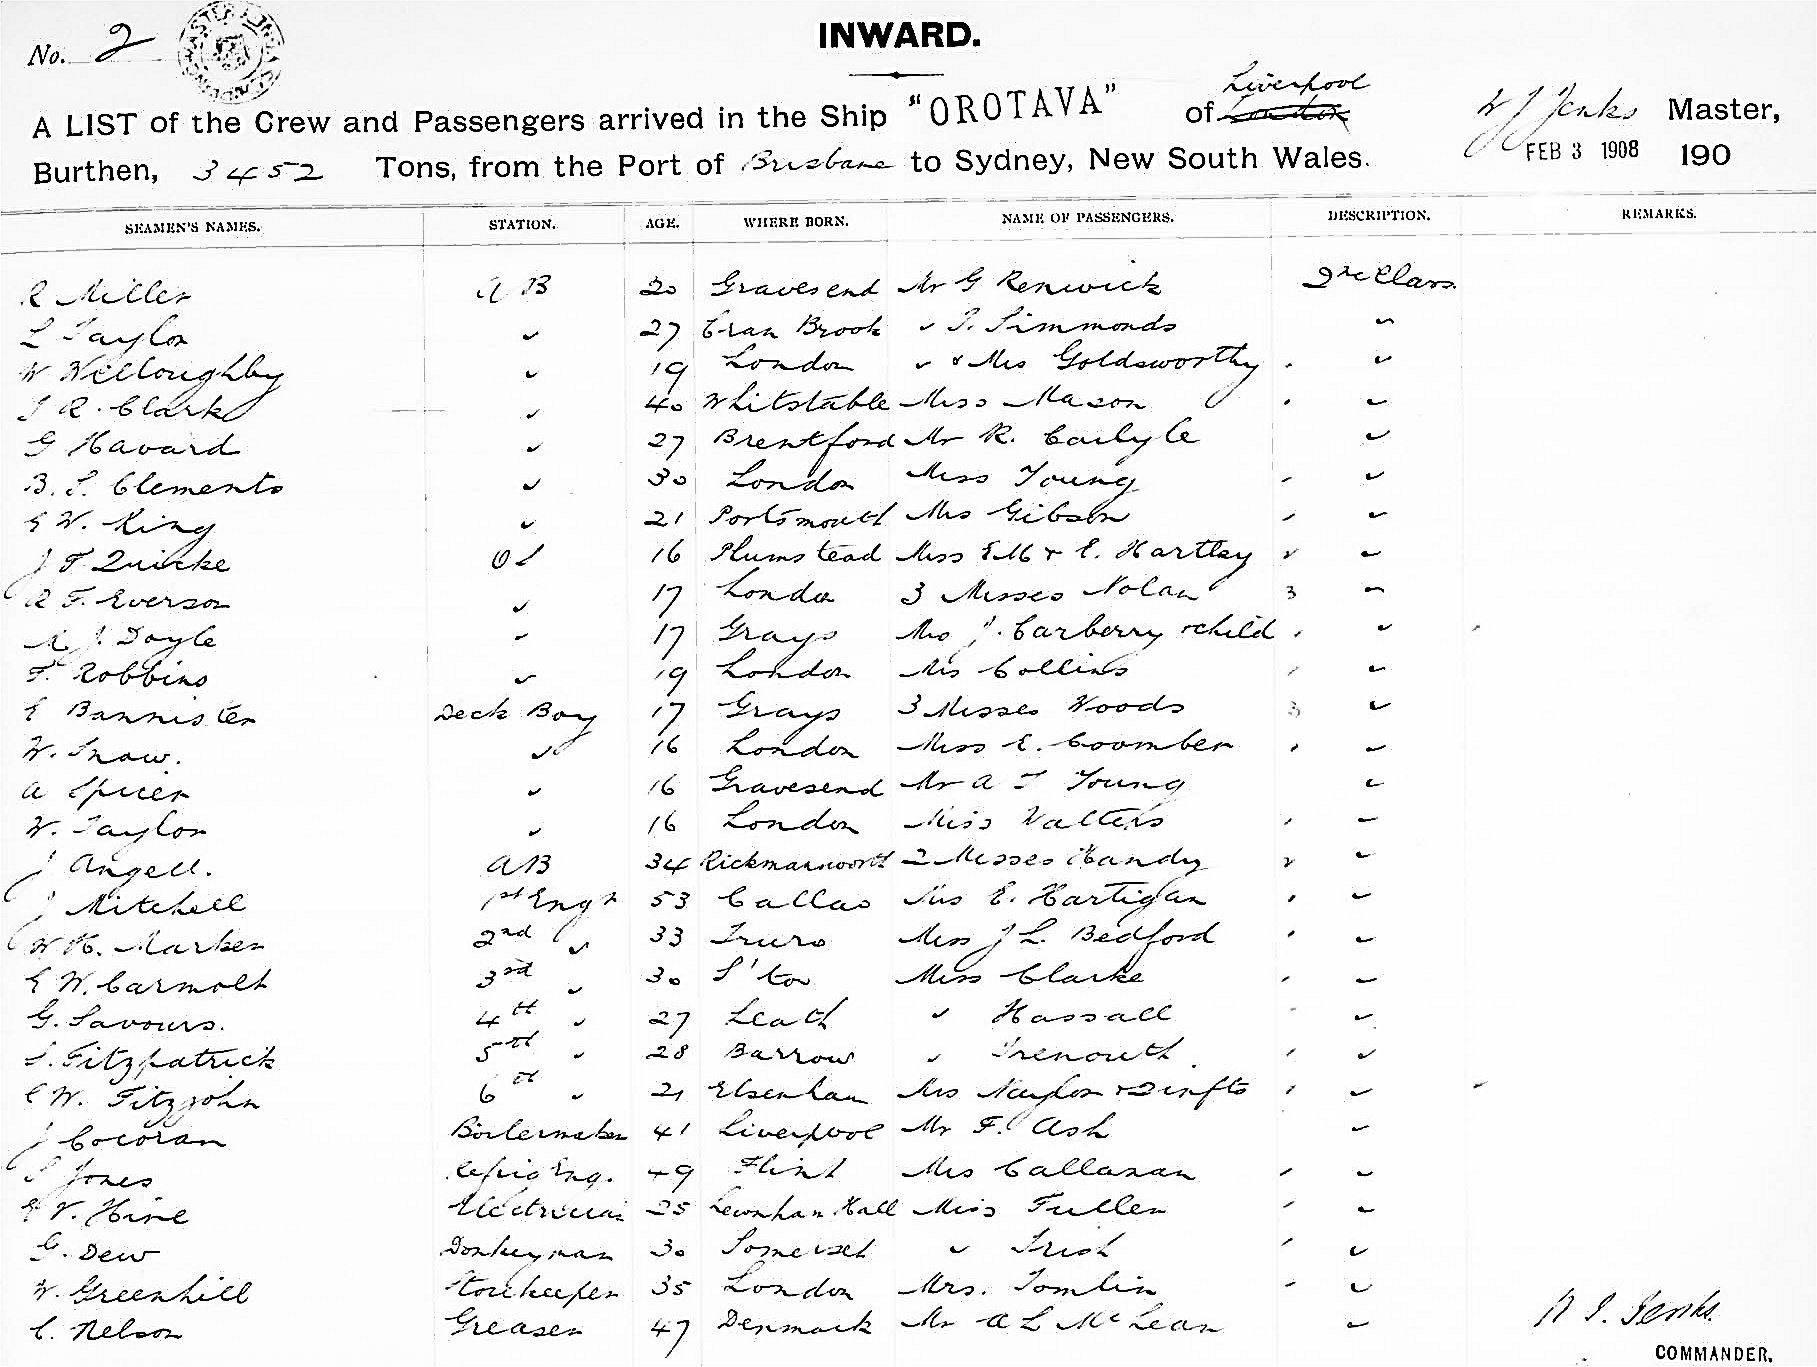 No. 2
INWARD.
A LIST of the Crew and Passengers arrived in the Ship "OROTAVA" of London Liverpool W J Jenks Master,
Burthen, 3452 Tons, from the Port of Brisbane to Sydney, New South Wales. FEB 3 1908 190
SEAMEN'S NAMES. STATION. AGE. WHERE BORN. NAME OF PASSENGERS. DESCRIPTION. REMARKS.
R Miller A B 20 Gravesend Mr G Renwick 2nd Class
L Taylor " 27 Cran Brook " T. Simmonds "
W Willoughby " 19 London " & Mrs Goldsworthy "
J R. Clark " 40 Whitstable Miss Mason "
G Havard " 27 Brentford Mr R. Carlyle "
B. S. Clements " 30 London Miss Young "
E W. King " 21 Portsmouth Mrs Gibson "
J F. Quicke O S 16 Plumstead Miss E M & E. Hartley 2 "
R F. Everson " 17 London 3 Misses Nolan 3 "
J. Doyle " 17 Grays Mrs J. Carberry & child "
F. Robbins " 19 London Mrs Collins "
E Bannister Deck Boy 17 Grays 3 Misses Woods 3 "
W. Snow. " 16 London Miss E. Coomber "
A Spicer " 16 Gravesend Mr A J Young "
W. Taylor " 16 London Miss Walters "
J Angell. A B 34 Rickmansworth 2 Misses Handy 2 "
J Mitchell 1st Engr 53 Callao Mrs E. Hartigan "
W H. Marker 2nd " 33 Truro Miss J L. Bedford "
E W. Carmolt 3rd " 30 S'ton Miss Clarke "
G. Savours. 4th " 27 Leath " Hassall "
S. Fitzpatrick 5th " 28 Barrow " Trenouth "
E W. Fitzjohn 6th " 21 Elsenham Mrs Naylor & 2 infts "
J Cocoran Boilermaker 41 Liverpool Mr F. Ash "
S Jones Refrig Eng. 49 Flint Mrs Callanan "
E V. Hine Electrician 25 Hall Miss Fuller "
G. Dew Donkeyman 30 Somerset " Irish "
W. Greenhill Storekeeper 35 London Mrs. Tomlin "
C. Nelson Greaser 47 Denmark Mr A L McLean "
W J. Jenks.
COMMANDER.